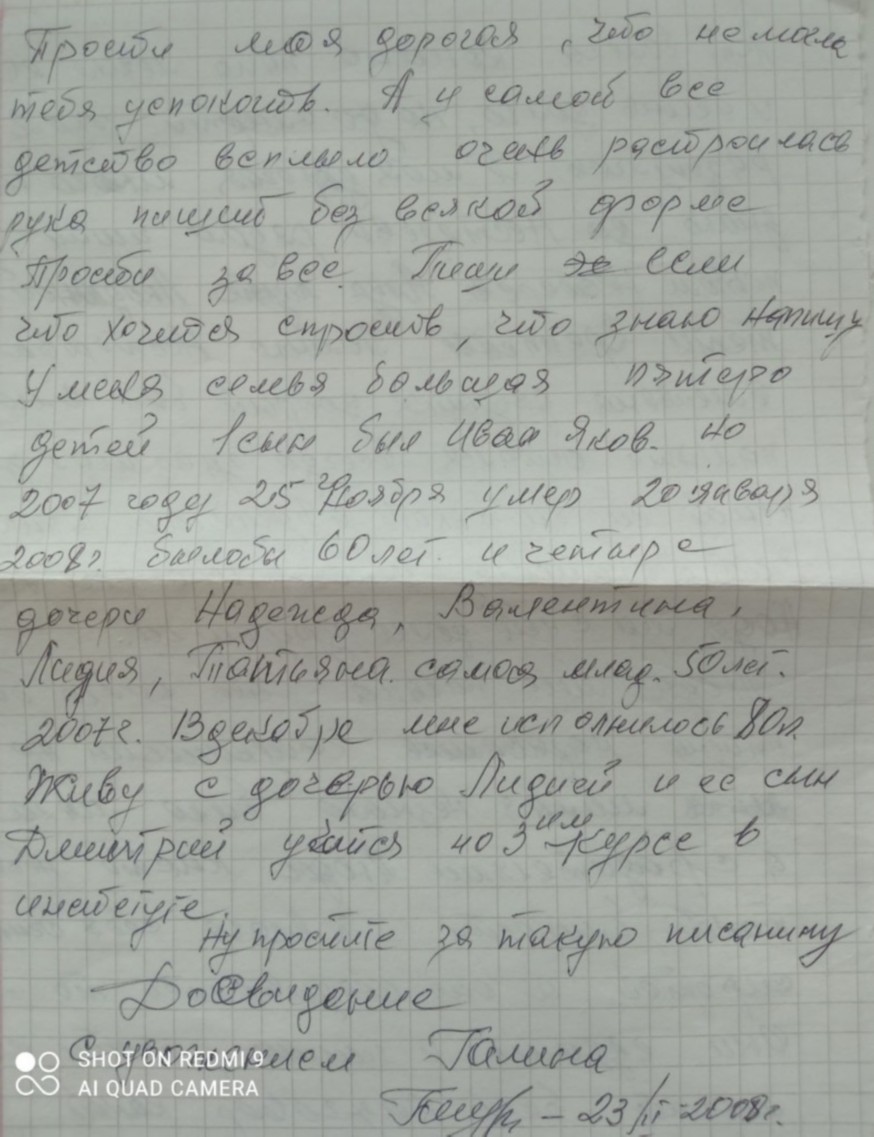 Прости моя дорогая, что не могла
тебя успокоить. А у самой все
детство всплыло очень растроилась
рука пишит без всякой форме
Прости за все. Пиши если
что хочится спросить, что знаю напишу
У меня семья большая пятеро
детей 1 сын был Иван Яков. но
2007 году 25 ноября умер 20 января
2008г. было бы 60 лет. и четыре
дочери Надежда, Валентина,
Лидия, Татьяна. самоя млад. 50 лет.
2007г. 13 декабря мне исполнилось 80л.
Живу с дочерью Лидией и ее сын
Дмитрий учится на 3им курсе в
институте.
Ну простите за такую писанину
До Свидание
С уважением Галина
23/II-2008г.
SHOT ON REDMI 9
AI QUAD CAMERA